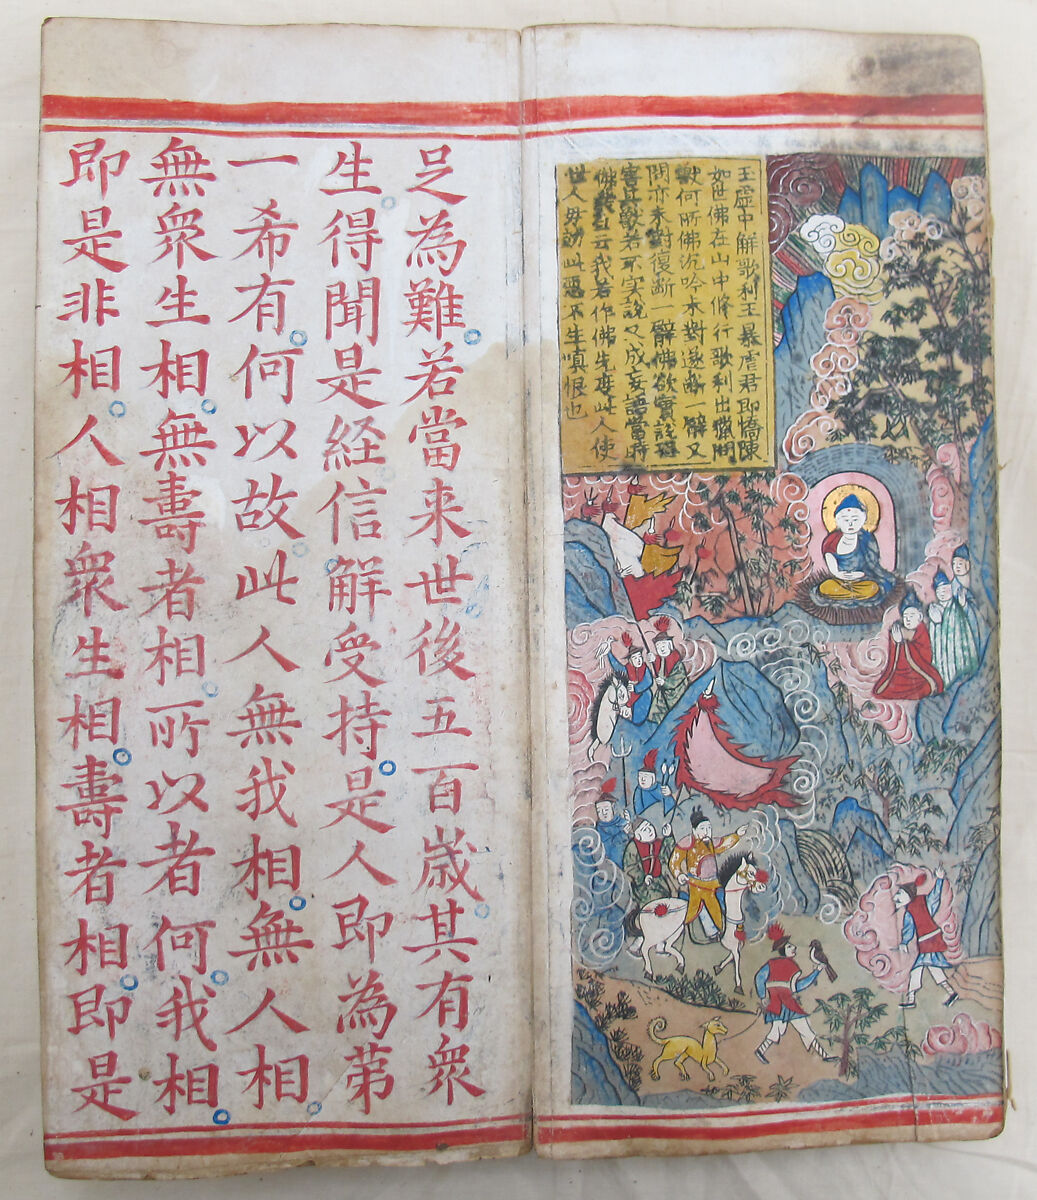 王虛中解歌利王暴虐君即憍陳
如世佛在山中修行歌利出獵問
獸何所佛沉吟未對遂斷一臂又
問亦未對復斷一臂佛欲實說碍
害其獸若不实說又成妄語當時
佛發言云我若作佛先度此人使
世人毋効此惡不生嗔恨也
足為難。若當来世。後五百歲。其有眾
生。得聞是経信。解受持。是人即為苐
一希有。何以故。此人無我相。無人相。
無眾生相。無壽者相。所以者何。我相。
即是非相。人相眾生相。壽者相。即是